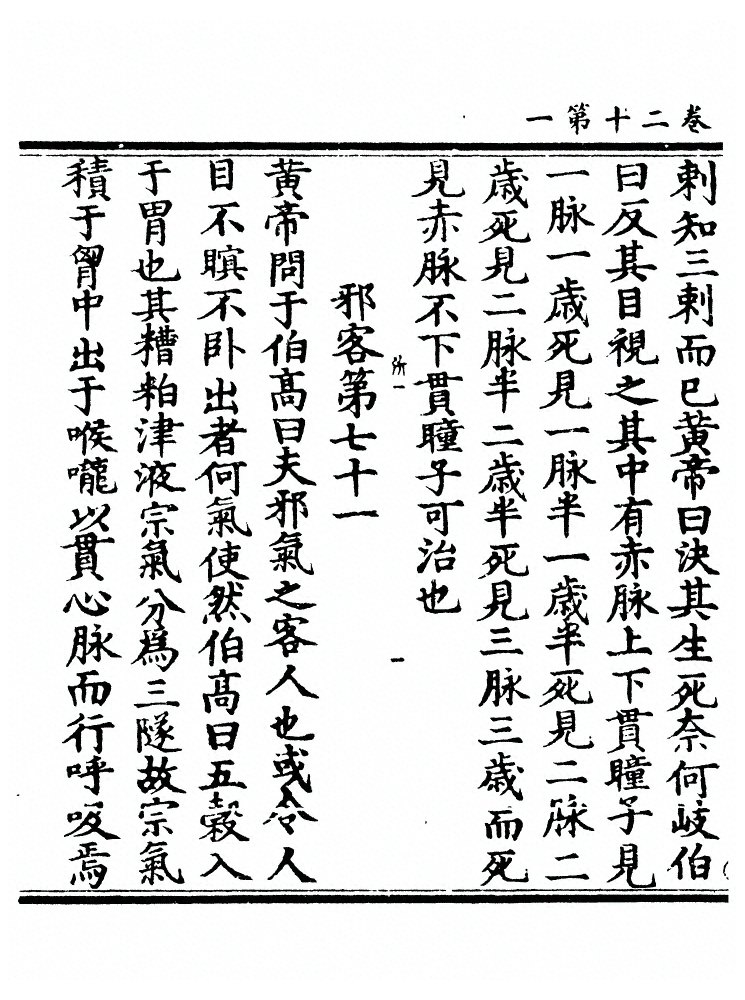 卷二十第一
刺知三刺而已黃帝曰決其生死奈何岐伯
曰反其目視之其中有赤脉上下貫瞳子見
一脉一歲死見一脉半一歲半死見二脉二
歲死見二脉半二歲半死見三脉三歲而死
見赤脉不下貫瞳子可治也
邪客第七十一
黃帝問于伯高曰夫邪氣之客人也或令人
目不瞑不卧出者何氣使然伯高曰五穀入
于胃也其糟粕津液宗氣分爲三隧故宗氣
積于胷中出于喉嚨以貫心脉而行呼吸焉